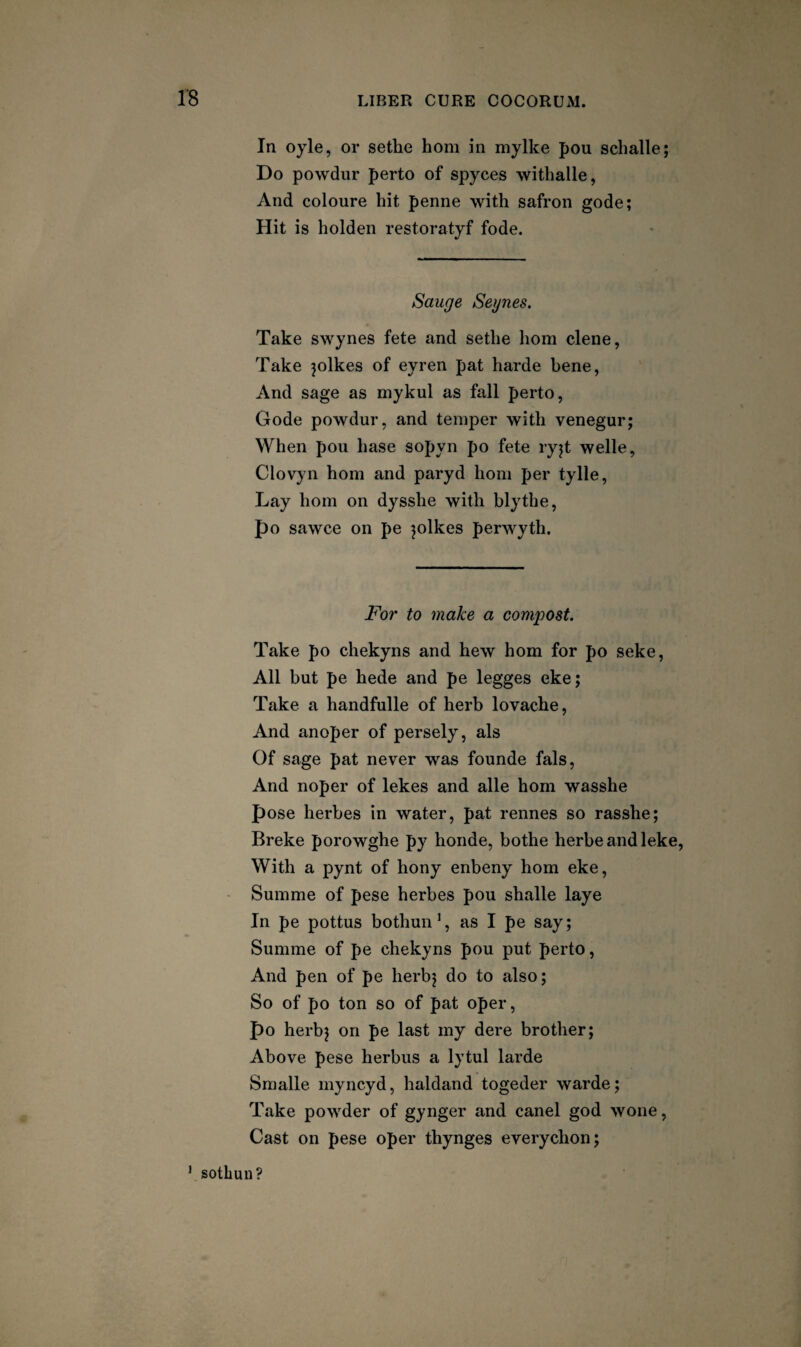 18 LIBER CURE COCORUM.
In oyle, or sethe hom in mylke þou schalle;
Do powdur þerto of spyces withalle,
And coloure hit þenne with safron gode;
Hit is holden restoratyf fode.
Sauge Seynes.
Take swynes fete and sethe hom clene,
Take ȝolkes of eyren þat harde bene,
And sage as mykul as fall þerto,
Gode powdur, and temper with venegur;
When þou hase soþyn þo fete ryȝt welle,
Clovyn hom and paryd hom þer tylle,
Lay hom on dysshe with blythe,
Þo sawce on þe ȝolkes þerwyth.
For to make a compost.
Take þo chekyns and hew hom for þo seke,
All but þe hede and þe legges eke;
Take a handfulle of herb lovache,
And anoþer of persely, als
Of sage þat never was founde fals,
And noþer of lekes and alle hom wasshe
Þose herbes in water, þat rennes so rasshe;
Breke þorowghe þy honde, bothe herbe and leke,
With a pynt of hony enbeny hom eke,
Summe of þese herbes þou shalle laye
In þe pottus bothun¹, as I þe say;
Summe of þe chekyns þou put þerto,
And þen of þe herbȝ do to also;
So of þo ton so of þat oþer,
Þo herbȝ on þe last my dere brother;
Above þese herbus a lytul larde
Smalle myncyd, haldand togeder warde;
Take powder of gynger and canel god wone,
Cast on þese oþer thynges everychon;
¹ sothun?